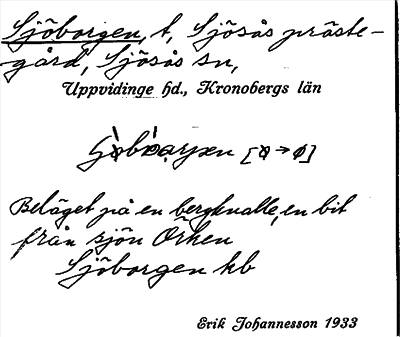 Sjöborgen, t, Sjösås präste-
gård, Sjösås sn,
Uppvidinge hd., Kronobergs län
Beläget på en bergknalle, en bit
från sjön Örken
Sjöborgen hb
Erik Johannesson 1933